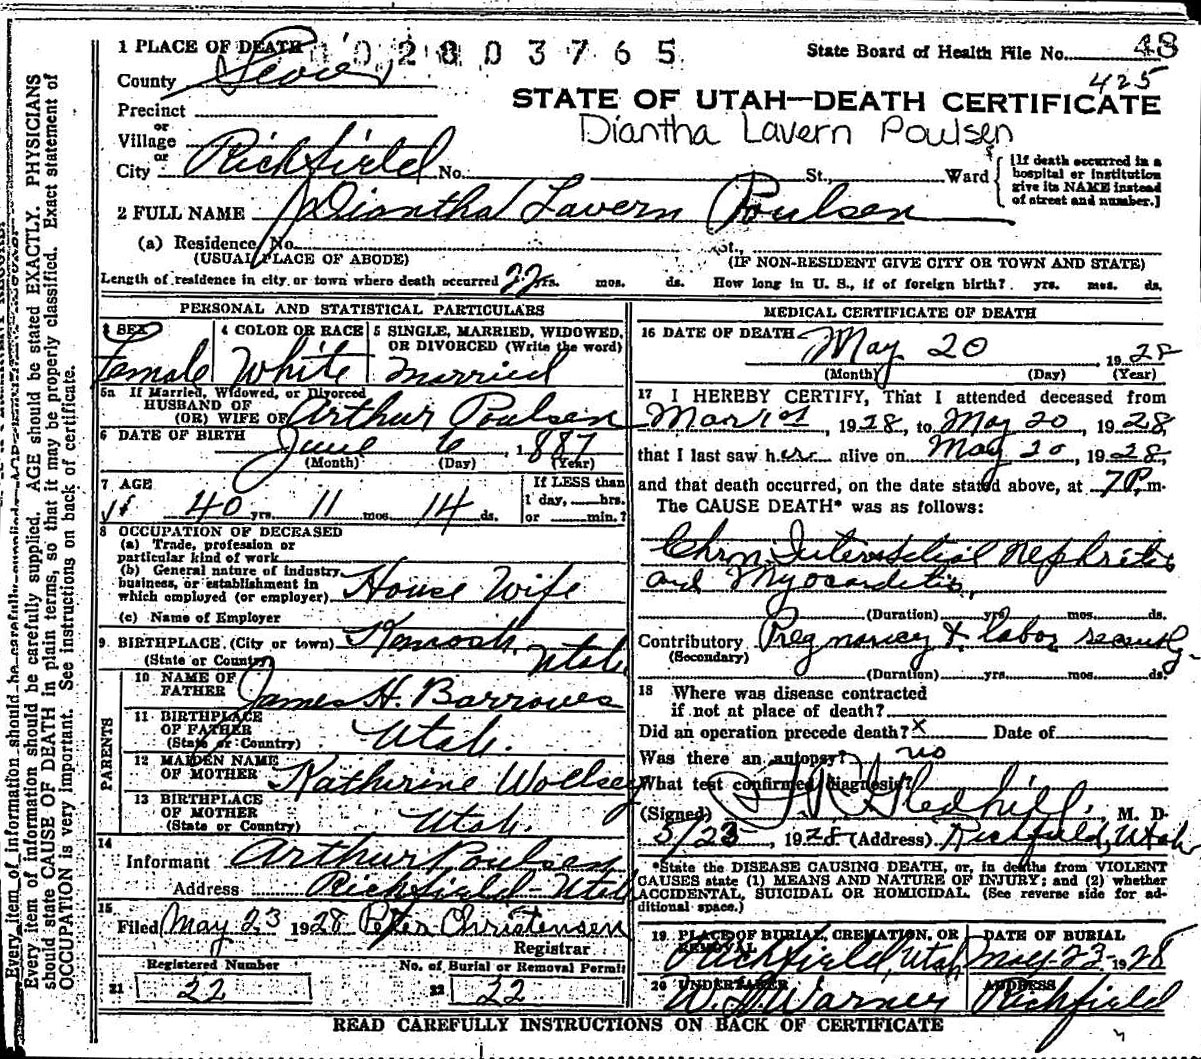 1 PLACE OF DEATH 0 2 8 0 3 7 6 5 State Board of Health File No. 48
County Sevier 425
STATE OF UTAH—DEATH CERTIFICATE
Precinct
or
Village
Diantha Lavern Poulsen
or
City Richfield No. St., Ward
[If death occurred in a
hospital or institution
give its NAME instead
of street and number.]
2 FULL NAME Diantha Lavern Poulsen
(a) Residence, No. St.,
(USUAL PLACE OF ABODE) (IF NON-RESIDENT GIVE CITY OR TOWN AND STATE)
Length of residence in city or town where death occurred 22 yrs. mos. ds. How long in U. S., if of foreign birth? yrs. mos. ds.
PERSONAL AND STATISTICAL PARTICULARS
3 SEX
Female
4 COLOR OR RACE
White
5 SINGLE, MARRIED, WIDOWED,
OR DIVORCED (Write the word)
Married
5a If Married, Widowed, or Divorced
HUSBAND OF
(OR) WIFE OF Arthur Poulsen
6 DATE OF BIRTH June 6, 1887
(Month) (Day) (Year)
7 AGE
40 yrs. 11 mos. 14 ds.
If LESS than
1 day, hrs.
or min.?
8 OCCUPATION OF DECEASED
(a) Trade, profession or
particular kind of work
(b) General nature of industry,
business, or establishment in
which employed (or employer) House Wife
(c) Name of Employer
9 BIRTHPLACE (City or town) Kanosh,
(State or Country) Utah
PARENTS
10 NAME OF
FATHER James H. Barrowes
11 BIRTHPLACE
OF FATHER
(State or Country) Utah.
12 MAIDEN NAME
OF MOTHER Katherine Wollsey
13 BIRTHPLACE
OF MOTHER
(State or Country) Utah.
14
Informant Arthur Poulsen
Address Richfield-Utah
15
Filed May 23 1928 Peter Christensen
Registrar
Registered Number No. of Burial or Removal Permit
21 22 22 22
MEDICAL CERTIFICATE OF DEATH
16 DATE OF DEATH May 20 1928
(Month) (Day) (Year)
17 I HEREBY CERTIFY, That I attended deceased from
Mar 1st, 1928, to May 20, 1928,
that I last saw her alive on May 20, 1928,
and that death occurred, on the date stated above, at 7 P. m.
The CAUSE DEATH* was as follows:
Chrn Interstitial Nephritis
and Myocarditis,
(Duration) yrs. mos. ds.
Contributory Pregnancy & labor recently-
(Secondary)
(Duration) yrs. mos. ds.
18 Where was disease contracted
if not at place of death?
Did an operation precede death? x Date of
Was there an autopsy? no
What test confirmed diagnosis?
(Signed) Gledhill, M. D.
5/23, 1928 (Address) Richfield, Utah
*State the DISEASE CAUSING DEATH, or, in deaths from VIOLENT
CAUSES state (1) MEANS AND NATURE OF INJURY; and (2) whether
ACCIDENTAL, SUICIDAL OR HOMICIDAL. (See reverse side for ad-
ditional space.)
19 PLACE OF BURIAL, CREMATION, OR
REMOVAL
Richfield, Utah
DATE OF BURIAL
May-23-1928
20 UNDERTAKER
W. Warner
ADDRESS
Richfield
READ CAREFULLY INSTRUCTIONS ON BACK OF CERTIFICATE
Every item of information should be carefully supplied. AGE should be stated EXACTLY. PHYSICIANS
should state CAUSE OF DEATH in plain terms, so that it may be properly classified. Exact statement of
OCCUPATION is very important. See instructions on back of certificate.